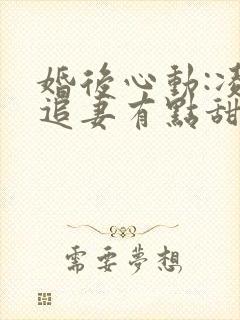 婚後心動:
追妻有點甜
需要夢想